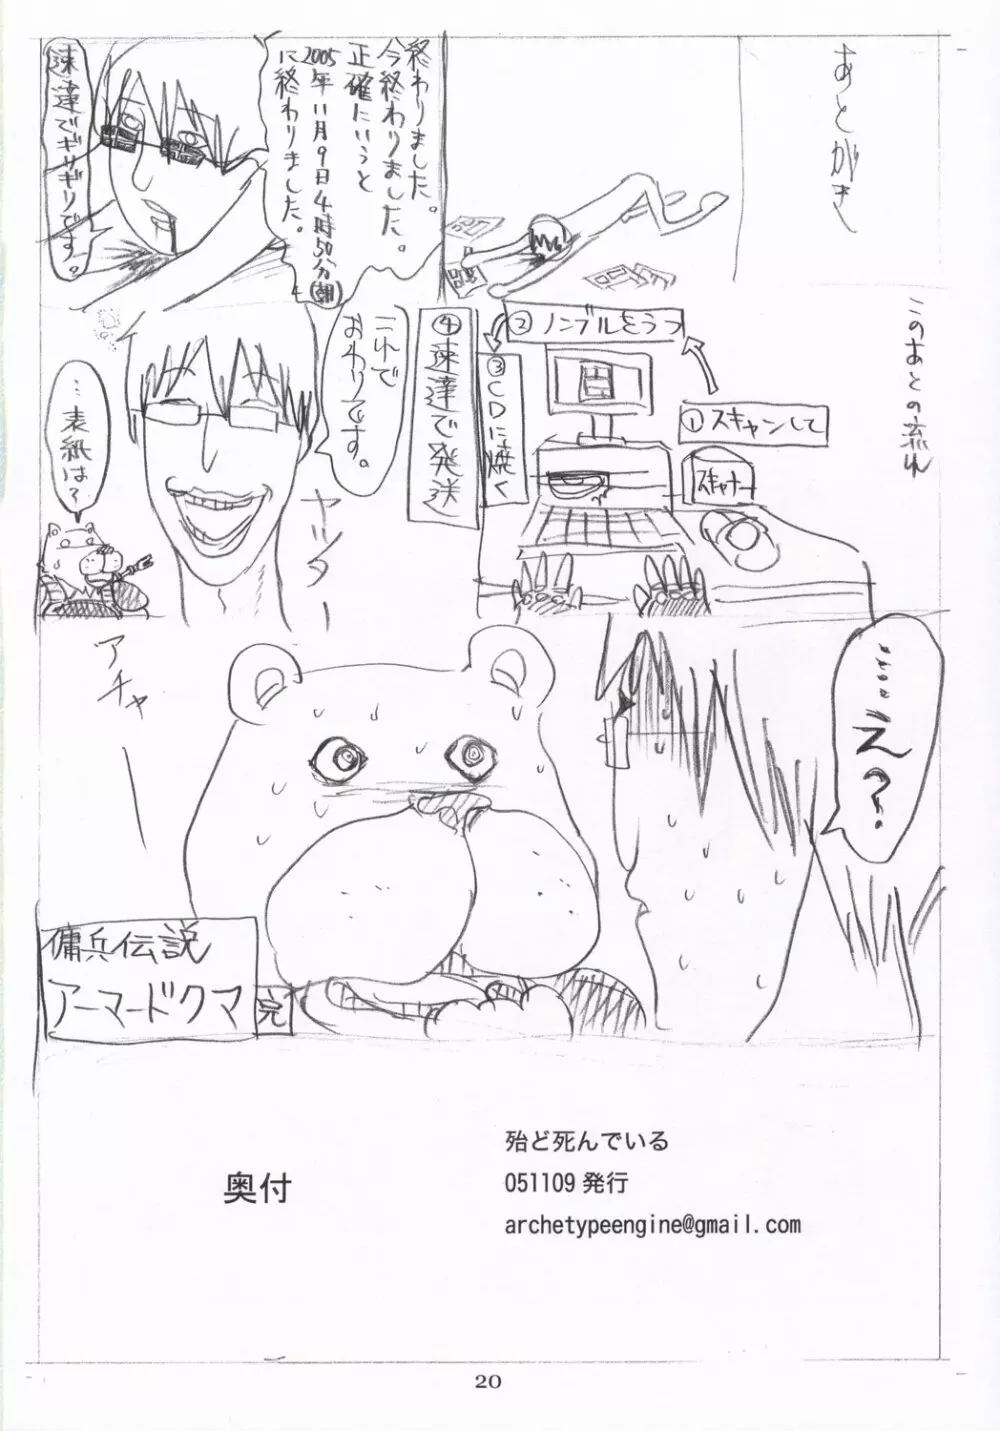 あとがき
終わりました。
今終わりました。
正確にいうと
2005年11月9日4時50分(朝)
に終わりました。
速達でギリギリです。
このあとの流れ
①スキャンして
スキャナー
②ノンブルをうつ
③CDに焼く
④速達で発送
これで
おわりです。
ヤッター
…表紙は?
……えっ?
アチャー
傭兵伝説
アーマードクマ
完
奥付
殆ど死んでいる
051109 発行
archetypeengine@gmail.com
20